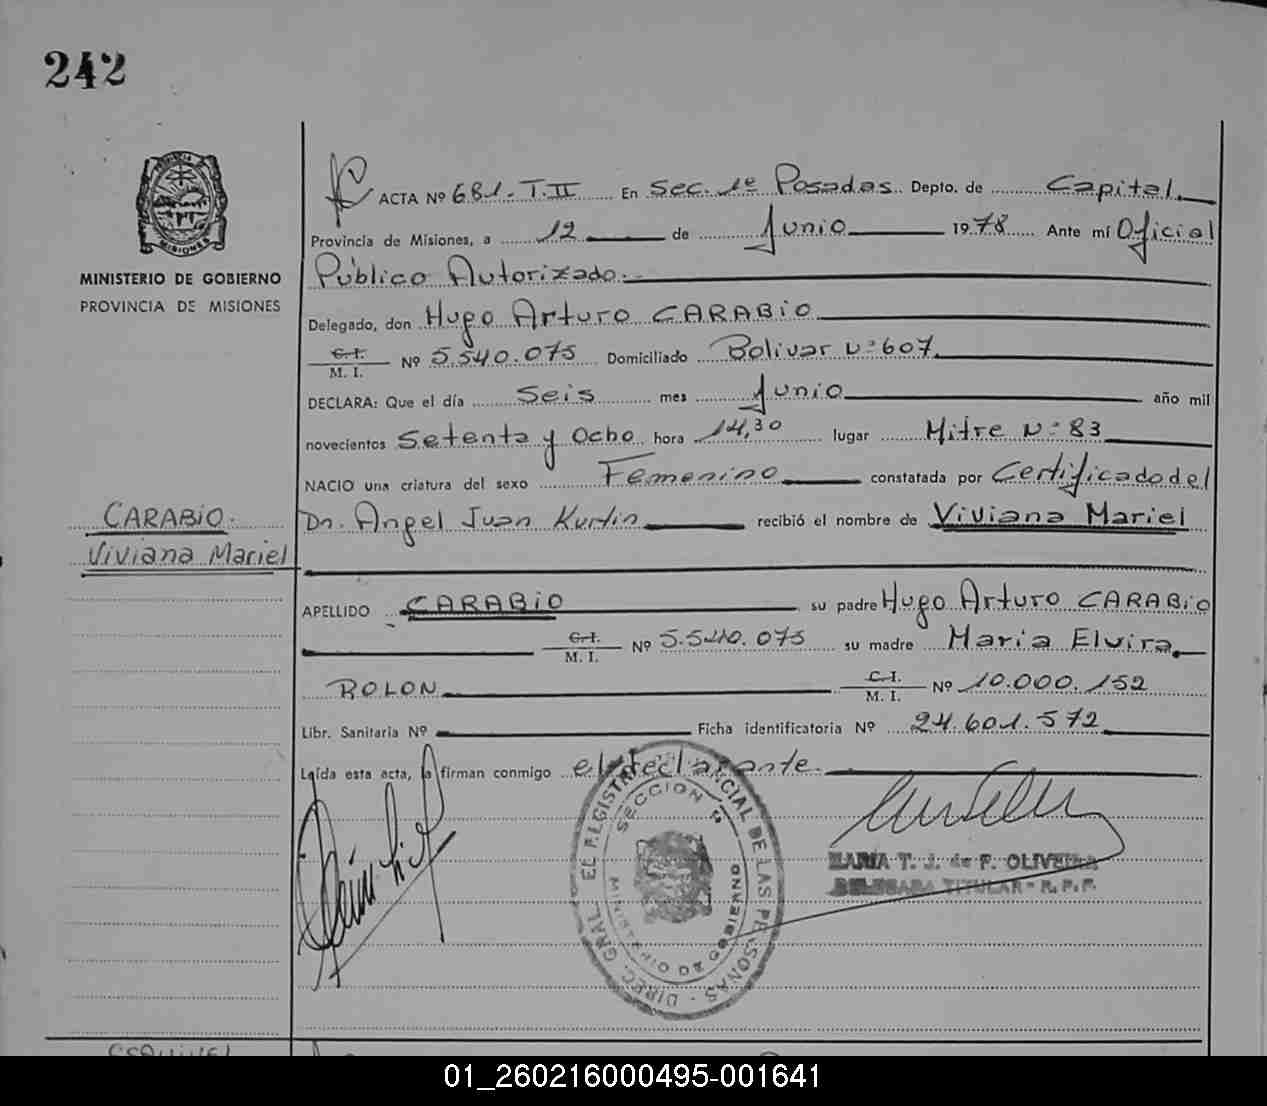 242
PROVINCIA DE
MISIONES
MINISTERIO DE GOBIERNO
PROVINCIA DE MISIONES
ACTA Nº 681-T.II En Sec. 1º Posadas Depto. de Capital
Provincia de Misiones, a 12 de Junio 1978 Ante mí Oficial
Público Autorizado.
Delegado, don Hugo Arturo CARABIO
C.I. M. I. Nº 5.540.075 Domiciliado Bolivar Nº 607
DECLARA: Que el día Seis mes Junio año mil
novecientos Setenta y Ocho hora 14,30 lugar Mitre Nº 83
NACIO una criatura del sexo Femenino constatada por Certificado del
Dr. Angel Juan Kurtin recibió el nombre de Viviana Mariel
CARABIO.
Viviana Mariel
APELLIDO CARABIO su padre Hugo Arturo CARABIO
C.I. M. I. Nº 5.540.075 su madre Maria Elvira
ROLON C.I. M. I. Nº 10.000.152
Libr. Sanitaria Nº Ficha identificatoria Nº 24.601.572
Leída esta acta, la firman conmigo el declarante.
SECCION 1ª
MINISTERIO DE GOBIERNO
MARIA T. J. de F. OLIVEIRA
DELEGADA TITULAR - R. P. P.
ESQUIVEL
01_260216000495-001641